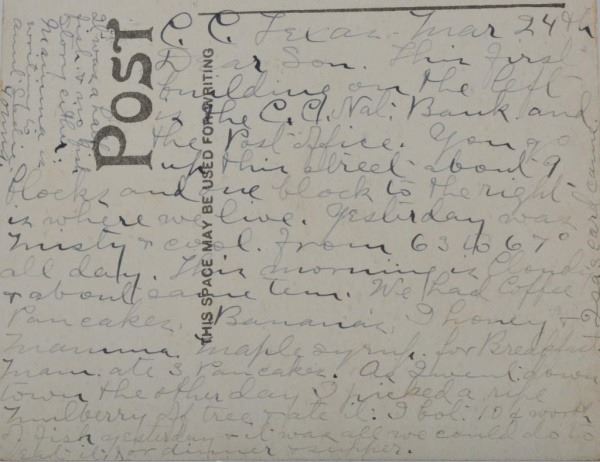 C. C. Texas. Mar 24th
Dear Son. This first
building on the left
is the C. C. Nat. Bank and
the Post office. You go
up this street about 9
blocks and one block to the right
is where we live. Yesterday was
misty & cool. From 63 to 67°
all day. This morning is Cloudy
& about same tem. We had Coffee
Pancakes, Bananas, I honey &
Mamma Maple syrup. for Breakfast.
Mam. ate 3 Pancakes. As I went down
town the other day I picked a ripe
Mulberry off tree & ate it. I bot. 10¢ worth
of Fish yesterday & it was all we could do to
eat it for dinner & supper.
It was a
fish & no
story either.
Mamma is
writing to
POST
THIS SPACE MAY BE USED FOR WRITING
card came